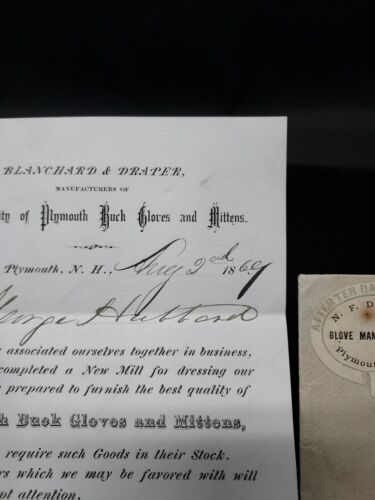 BLANCHARD & DRAPER,
MANUFACTURERS OF
ity of Plymouth Buck Gloves and Mittens.
Plymouth, N. H., Aug 2nd 1869
George Hubbard
associated ourselves together in business,
completed a New Mill for dressing our
prepared to furnish the best quality of
h Buck Gloves and Mittens,
require such Goods in their Stock.
rs which we may be favored with will
pt attention.
AFTER TEN DA
N. F. D
GLOVE MAN
Plymou